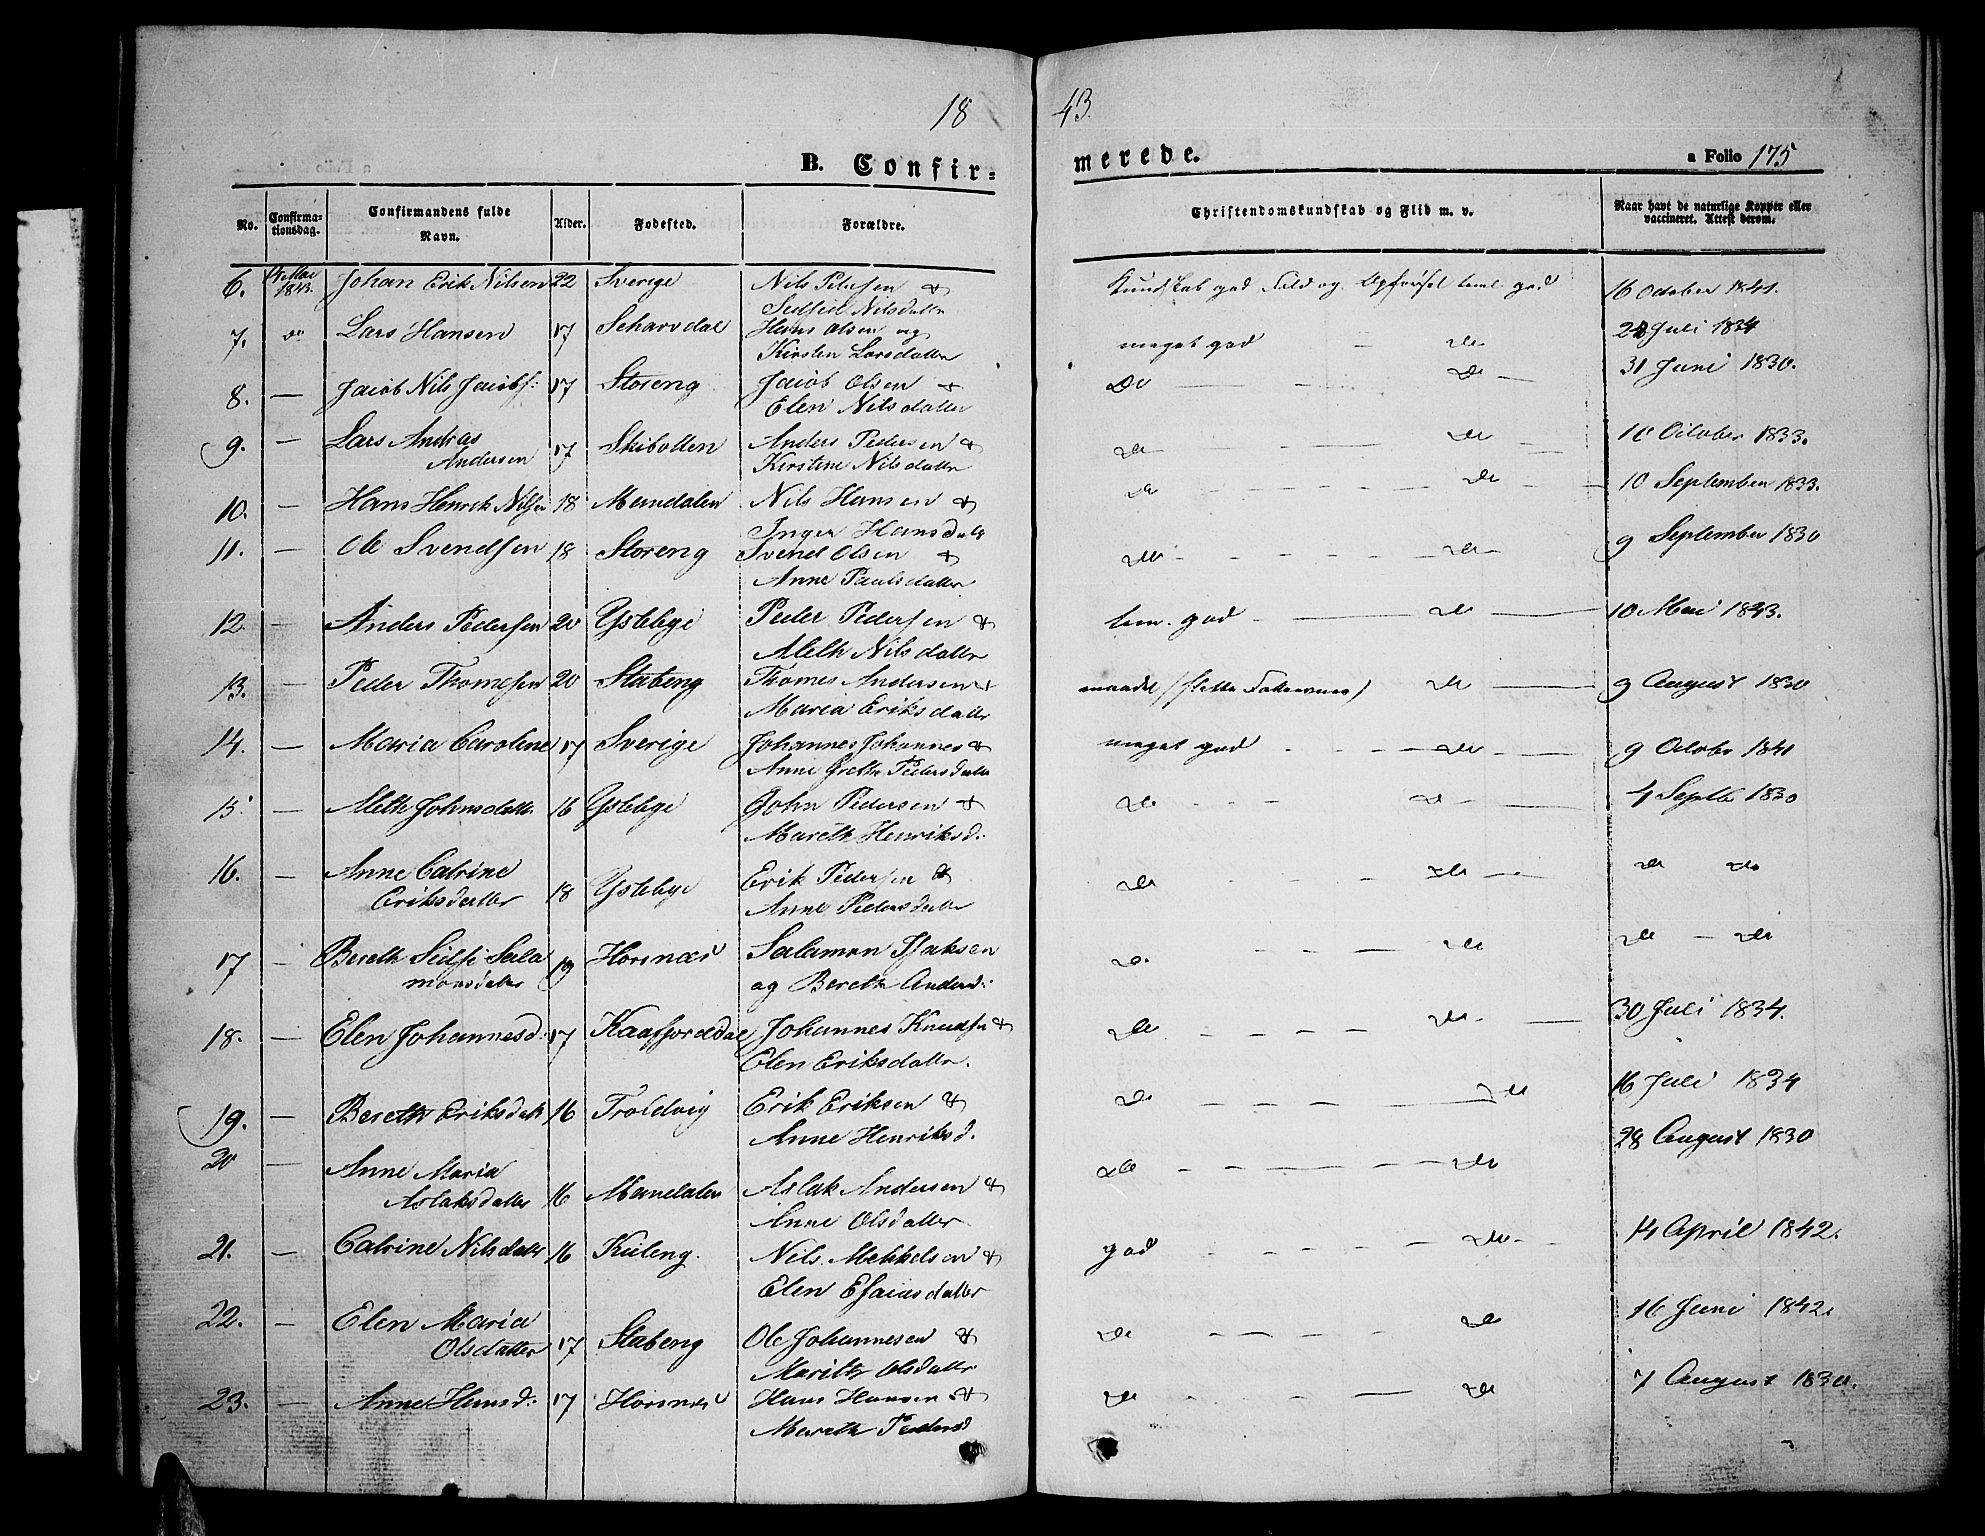 18
43.
B. Confir=
merede.
a Folio 175
No.
Confirma-
tionsdag.
Confirmandens fulde
Navn.
Alder.
Fodested.
Forældre.
Christendomskundskab og Flid m. v.
Naar havt de naturlige Kopper eller
vaccineret. Attest derom.
6. 14 Mai 1843. Johan Erik Nilsen 22 Sverige Nils Petersen & Kundskab god Flid og Opførsel tem. god 16 October 1841.
Nilsdatter
7. do Lars Hansen 17 Scharvdal Hans Olsen og meget god - do 28 Juli 1834
Kirsten Larsdatter
8. — Jacob Nils Jacobs: 17 Storeng Jacob Olsen & do - do 31 Juni 1830.
Elen Nilsdatter
9. — Lars Andras 17 Skibotten Anders Pedersen & do - do 10 October 1833.
Andersen Kirstine Nilsdatter
10. — Hans Henrik Nilsen 18 Mandalen Nils Hansen & do - do 10 September 1833.
Inger Hansdatr
11. — Ole Svendsen 18 Storeng Svend Olsen & do - do 9 September 1830
Anne Paulsdatter
12. — Anders Pedersen 20 Ystebye Peder Pedersen & tem. god - do 10 Mai 1843.
Aleth Nilsdatter
13. — Peder Thomesen 20 Stabeng Thomes Andersen & maadel do 9 August 1830
Maria Eriksdatter
14. — Maria Caroline 17 Sverige Johannes Johannes & meget god - do 9 Octobr 1841
Anne Grethe Pedersdatter
15. — Aleth Johnsdatter 16 Ystebye John Pedersen & do - do 4 Septb 1830
Mareth Henriksd:
16. — Anne Catrine Erik Pedersen & do - do do do
Eriksdatter 18 Ystebye Anne Pedersdatter
17 — Bereth Sidse Sala 19 Horsnæs Salamon Isaksen do - do do - do
monsdatter og Bereth Andersd:
18. — Elen Johannesd: 17 Kaafjorddal Johannes Knudsen & do - do 30 Juli 1834.
Elen Eriksdatter.
19. — Bereth Eriksdatr 16 Troldvig Erik Eriksen & do - do 16 Juli 1834
Anne Henriksd.
20 — Anne Maria do - do 28 August 1830
Aslaksdatter 16 Mandalen Aslak Andersen &
Anne Olsdatter
21. — Catrine Nilsdatr 16 Kuleng. Nils Mekkelsen & god - do 14 April 1842.
Elen Esaiasdatter
22. — Elen Maria 16 Juni 1842.
Olsdatter 17 Stabeng Ole Johannesen & do - do
Marith Olsdatter
23. — Anne Hansd: 17 Horsnæs Hans Hansen & do - do 7 August 1830.
Mareth Pedersd